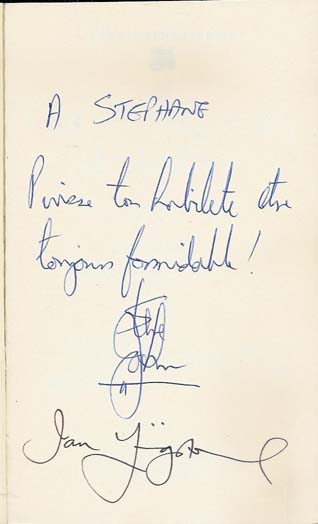 A STEPHANE
Puisse ton habilete etre
toujours formidable !
Ian